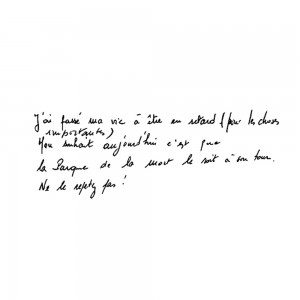 J'ai passé ma vie à être en retard (pour les choses
importantes)
Mon souhait aujourd'hui c'est que
la Parque de la mort le soit à son tour.
Ne le répétez pas !